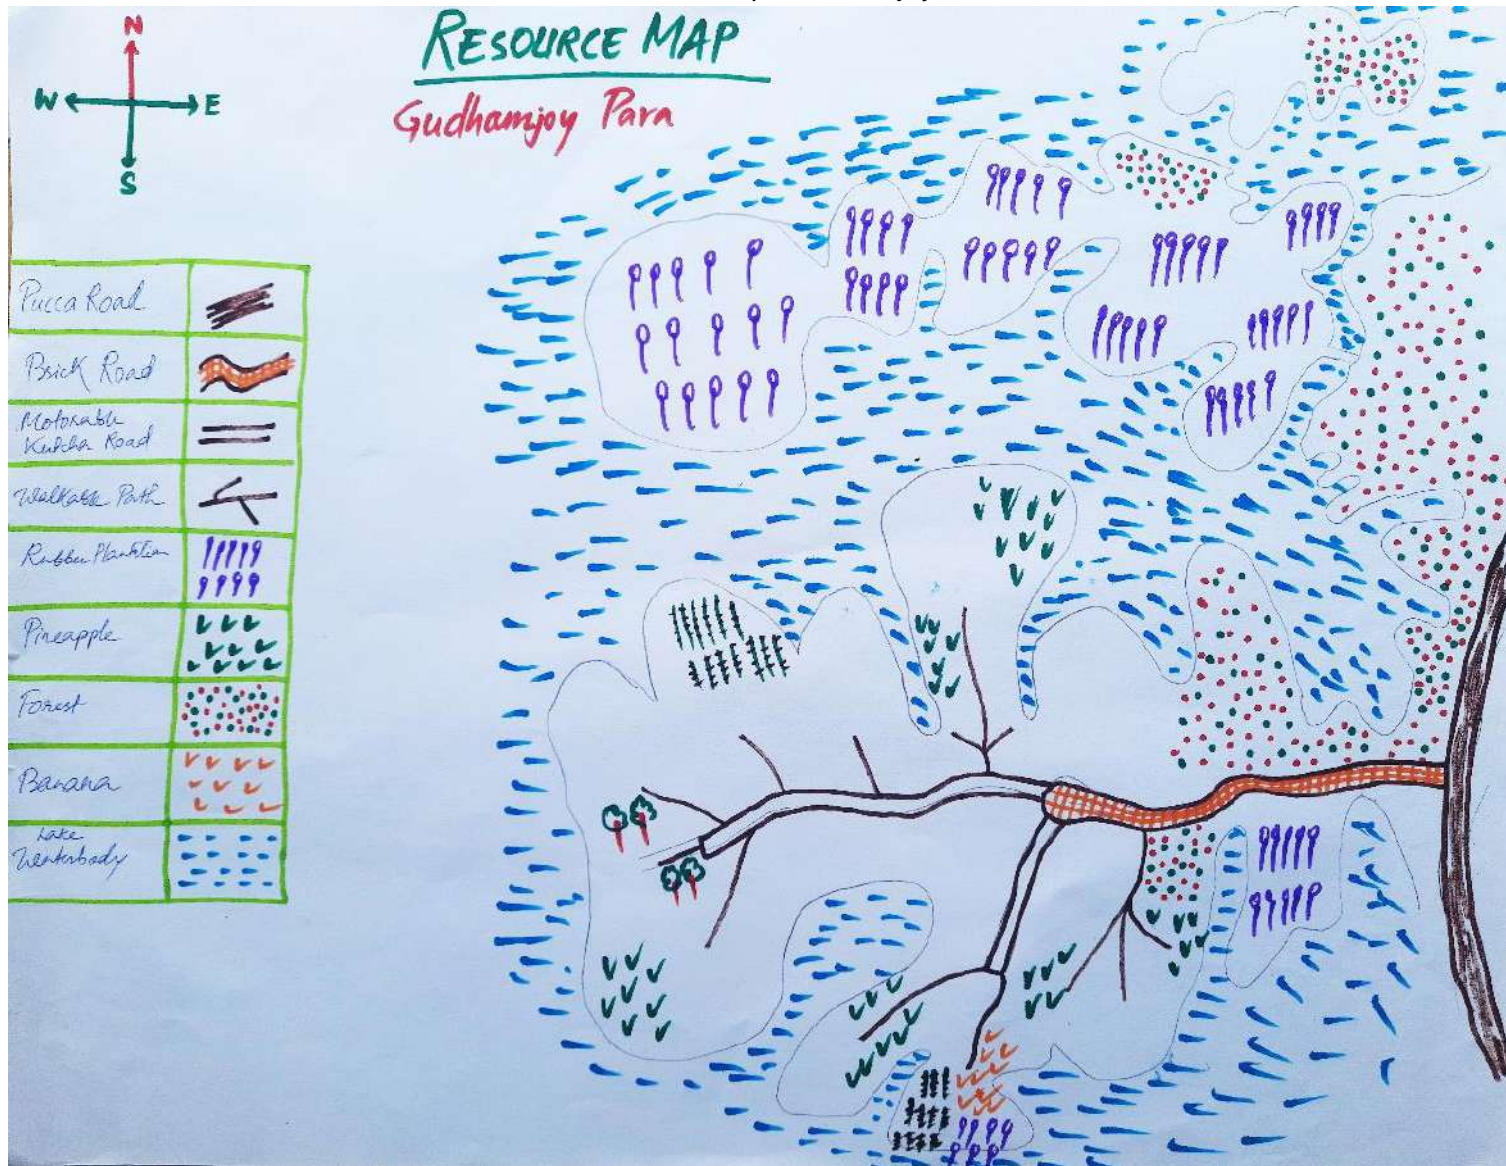 N
RESOURCE MAP
W E
Gudhamjoy Para
S
Pucca Road
Brick Road
Motorable
Kutcha Road
Walkable Path
Rubber Plantation
Pineapple
Forest
Banana
Lake
Waterbody